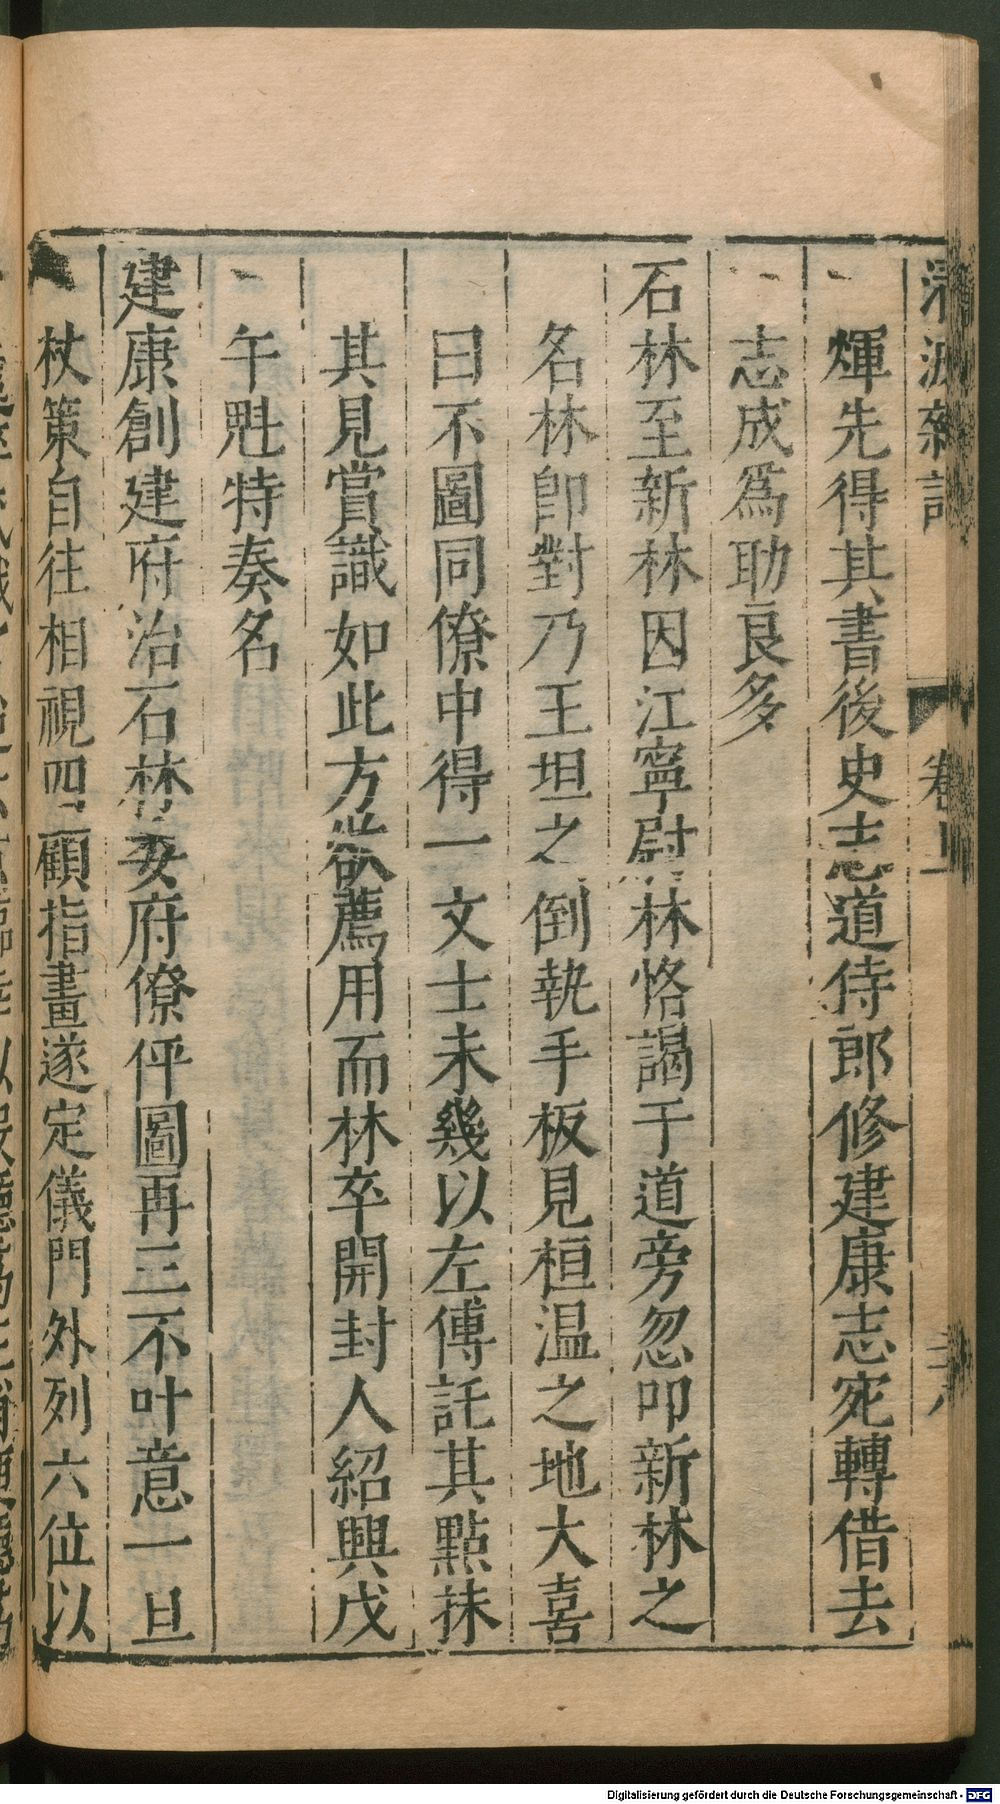 清波雜記
煇先得其書後史志道侍郎修建康志宛轉借去
志成爲助良多
石林至新林因江寧尉林恪謁于道旁忽叩新林之
名林卽對乃王坦之倒執手板見桓温之地大喜
曰不圖同僚中得一文士未幾以左傅託其點抹
其見賞識如此方欲薦用而林卒開封人紹興戊
午魁特奏名
建康創建府治石林委府僚伻圖再三不叶意一旦
杖策自往相視四顧指畫遂定儀門外列六位以
Digitalisierung gefördert durch die Deutsche Forschungsgemeinschaft - DFG